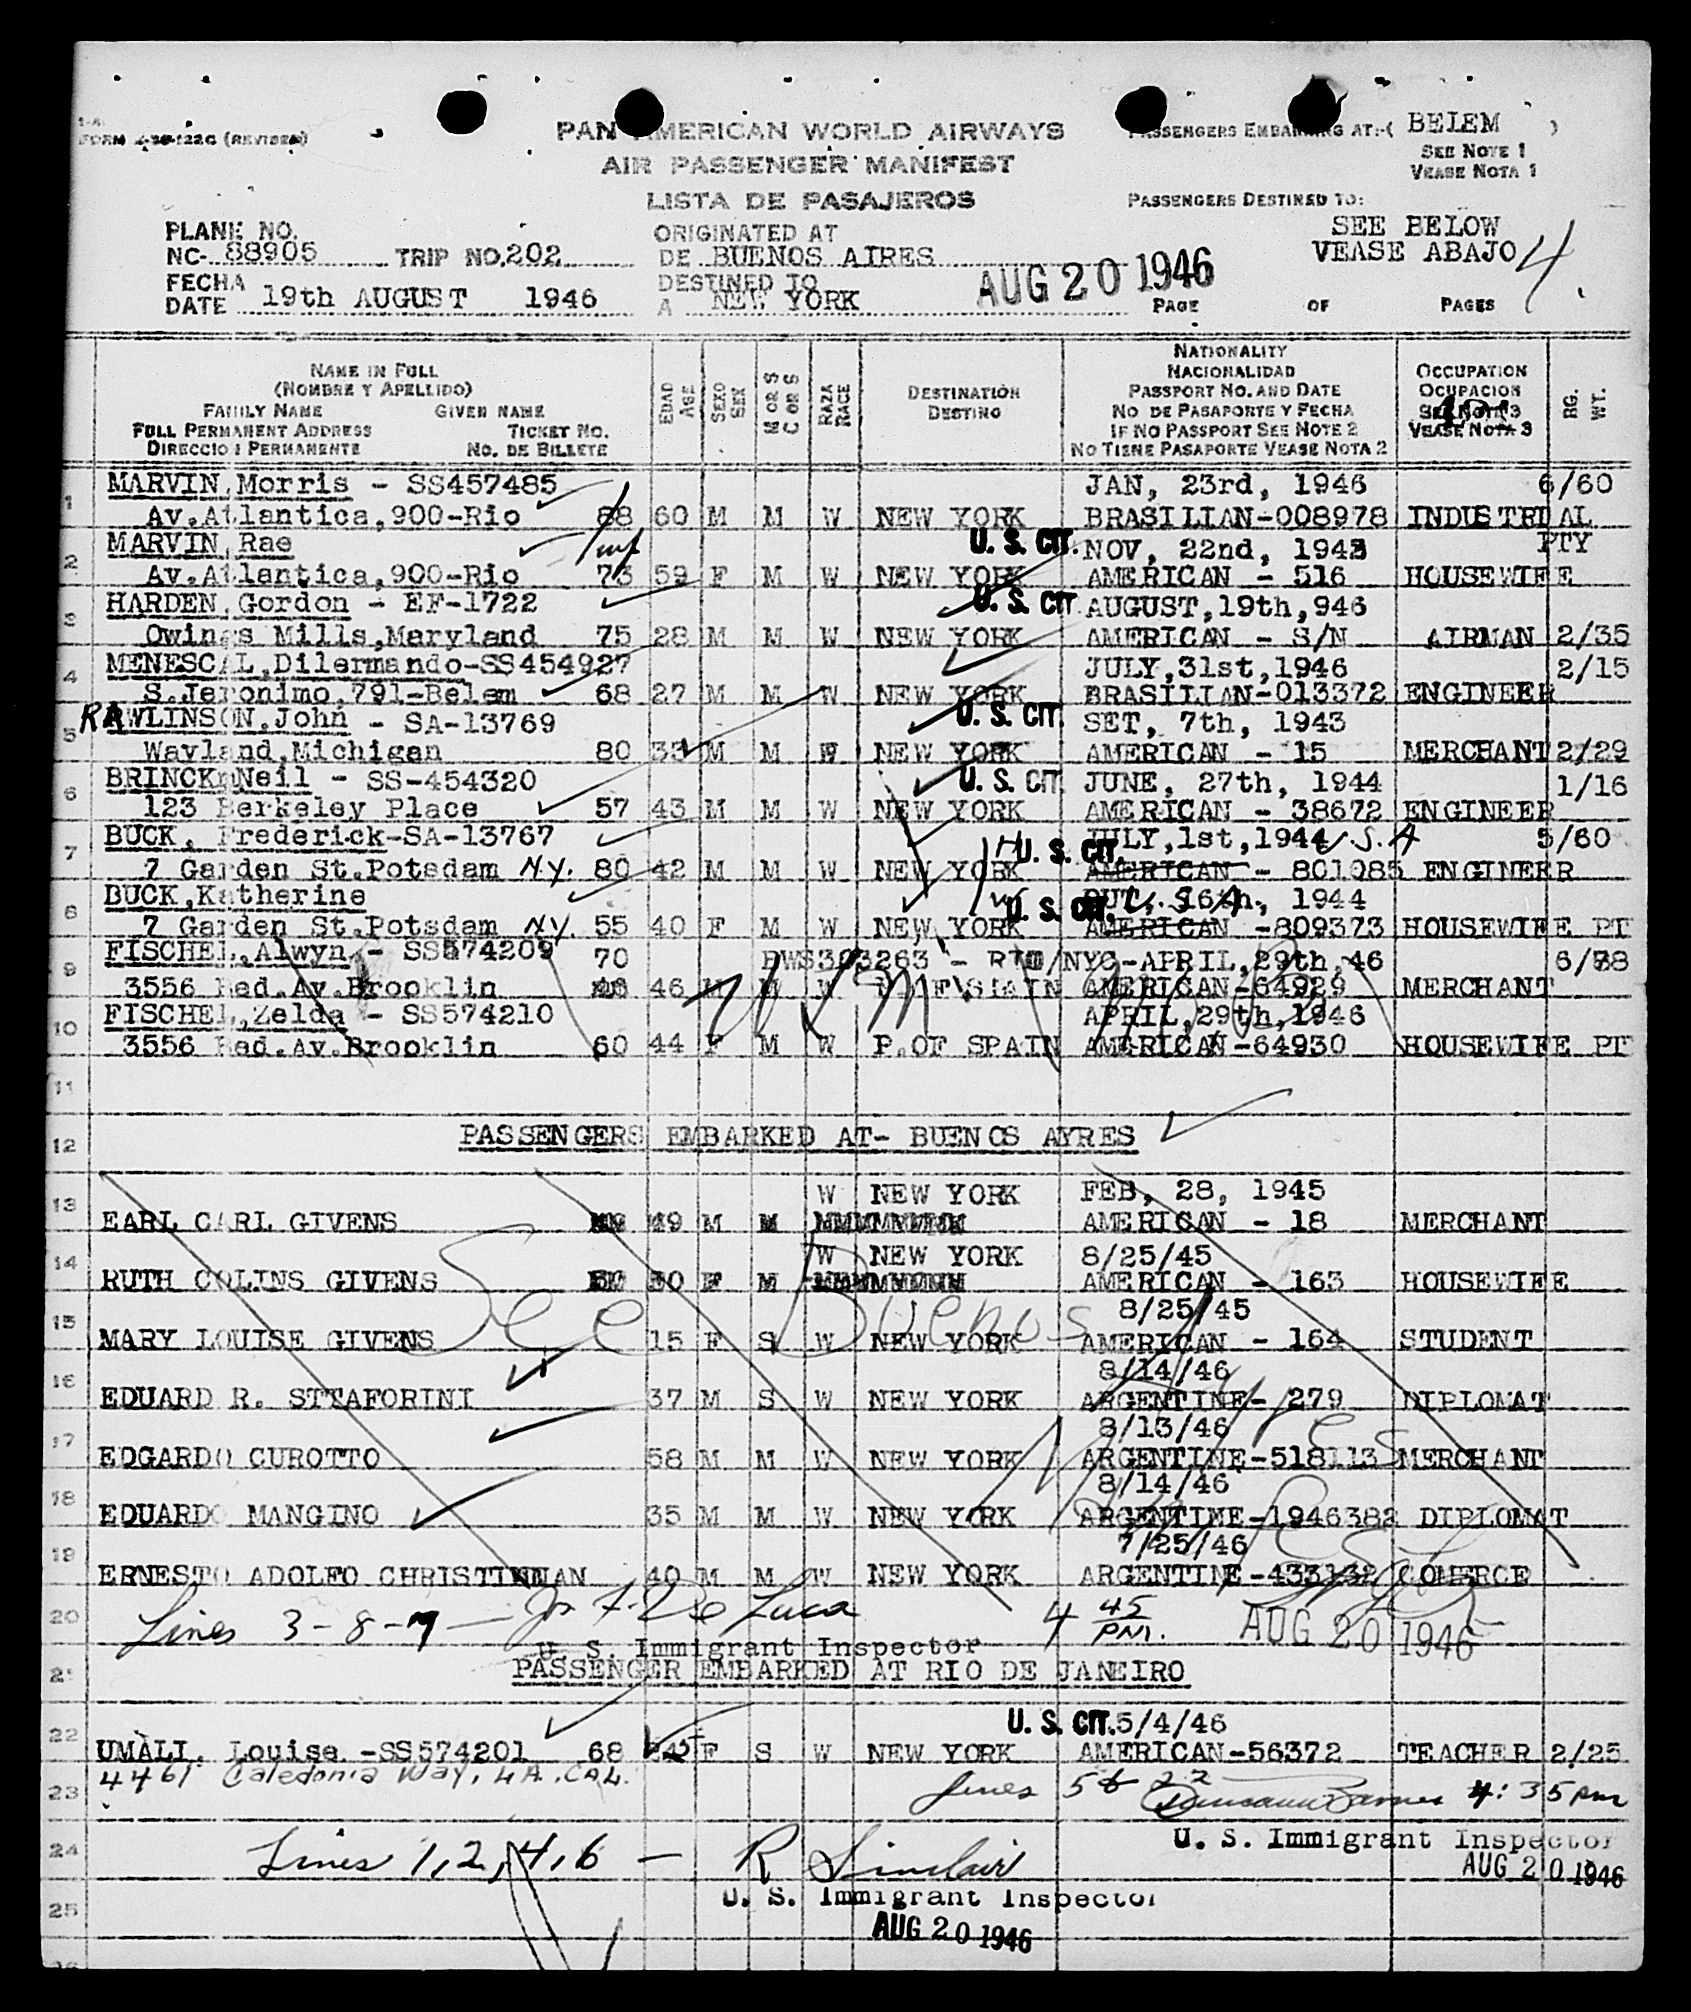 FORM (REVISED)
PAN AMERICAN WORLD AIRWAYS
AIR PASSENGER MANIFEST
LISTA DE PASAJEROS
PASSENGERS EMBARKING AT:-( BELEM )
SEE NOTE 1
VEASE NOTA 1
PASSENGERS DESTINED TO:
SEE BELOW
VEASE ABAJO 4
PLANE NO.
NC- 88905 TRIP NO. 202
FECHA
DATE 19th AUGUST 1946
ORIGINATED AT
DE BUENOS AIRES
DESTINED TO
A NEW YORK
AUG 20 1946
PAGE OF PAGES
NAME IN FULL
(NOMBRE Y APELLIDO)
FAMILY NAME GIVEN NAME
FULL PERMANENT ADDRESS TICKET NO.
DIRECCION PERMANENTE NO. DE BILLETE
EDAD AGE
SEXO SEX
M OR S C O S
RAZA RACE
DESTINATION
DESTINO
NATIONALITY
NACIONALIDAD
PASSPORT NO. AND DATE
NO DE PASAPORTE Y FECHA
IF NO PASSPORT SEE NOTE 2
NO TIENE PASAPORTE VEASE NOTA 2
OCCUPATION
OCUPACION
SEE NOTE 3
VEASE NOTA 3
BG. WT.
1 MARVIN, Morris - SS457485 JAN, 23rd, 1946 6/60
Av.Atlantica,900-Rio 88 60 M M W NEW YORK BRASILIAN-008978 INDUSTRIAL
2 MARVIN, Rae U. S. CIT. NOV, 22nd, 1943 PTY
Av.Atlantica,900-Rio 73 59 F M W NEW YORK AMERICAN - 516 HOUSEWIFE
3 HARDEN, Gordon - EF-1722 U. S. CIT AUGUST,19th,946
Owings Mills,Maryland 75 28 M M W NEW YORK AMERICAN - S/N AIRMAN 2/35
4 MENESCAL,Dilermando-SS454927 JULY,31st,1946 2/15
S.Jeronimo,791-Belem 68 27 M M W NEW YORK BRASILIAN-013372 ENGINEER
5 RAWLINSON.John - SA-13769 U. S. CIT. SET, 7th, 1943
Wayland,Michigan 80 33 M M W NEW YORK AMERICAN - 15 MERCHANT 2/29
6 BRINCK, Neil - SS-454320 U. S. CIT. JUNE, 27th, 1944 1/16
123 Berkeley Place 57 43 M M W NEW YORK AMERICAN - 38672 ENGINEER
7 BUCK, Frederick-SA-13767 H U. S. CIT. JULY,1st,1944 U.S.A 5/60
7 Garden St.Potsdam N.Y. 80 42 M M W NEW YORK AMERICAN - 801085 ENGINEER
8 BUCK,Katherine W U. S. CIT. U.S.A. 16th, 1944
7 Garden St.Potsdam N.Y. 55 40 F M W NEW YORK AMERICAN -809373 HOUSEWIFE PT
9 FISCHEL,Alwyn - SS574209 70 PWS303263 - RIO/NYC-APRIL,29th,46
3556 Bed.Av.Brooklin 46 M M W P.OF SPAIN AMERICAN-64929 MERCHANT
10 FISCHEL,Zelda - SS574210 APRIL,29th,1946
3556 Bed.Av.Brooklin 60 44 F M W P.OF SPAIN AMERICAN-64930 HOUSEWIFE PT
11
12 PASSENGERS EMBARKED AT- BUENOS AYRES
13 W NEW YORK FEB, 28, 1945
EARL CARL GIVENS 49 M M AMERICAN - 18 MERCHANT
14 W NEW YORK 8/25/45
RUTH COLINS GIVENS F M AMERICAN - 163 HOUSEWIFE
15 8/25/45
MARY LOUISE GIVENS 15 F S W NEW YORK AMERICAN - 164 STUDENT
See Buenos Ayres
16 8/14/46
EDUARD R. STTAFORINI 37 M S W NEW YORK ARGENTINE- 279 DIPLOMAT
17 8/13/46
EDGARDO CUROTTO 58 M M W NEW YORK ARGENTINE-518113 MERCHANT
18 8/14/46
EDUARDO MANGINO 35 M M W NEW YORK ARGENTINE-1946382 DIPLOMAT
19 7/25/46
ERNESTO ADOLFO 40 M M W NEW YORK ARGENTINE-433132 COMERCE
20 Lines 3-8-7 — Jos F. De Luca 4 45 PM. AUG 20 1946
U. S. Immigrant Inspector
21 PASSENGER EMBARKED AT RIO DE JANEIRO
22 U. S. CIT. 5/4/46
UMALI. Louise -SS574201 68 45 F S W NEW YORK AMERICAN-56372 TEACHER 2/25
23 4461 Caledonia Way, LA. CAL. Lines 5 & 22 4:35 pm
U. S. Immigrant Inspector
AUG 20 1946
24 Lines 1,2,4,6 — R Sinclair
25 U. S. Immigrant Inspector
AUG 20 1946